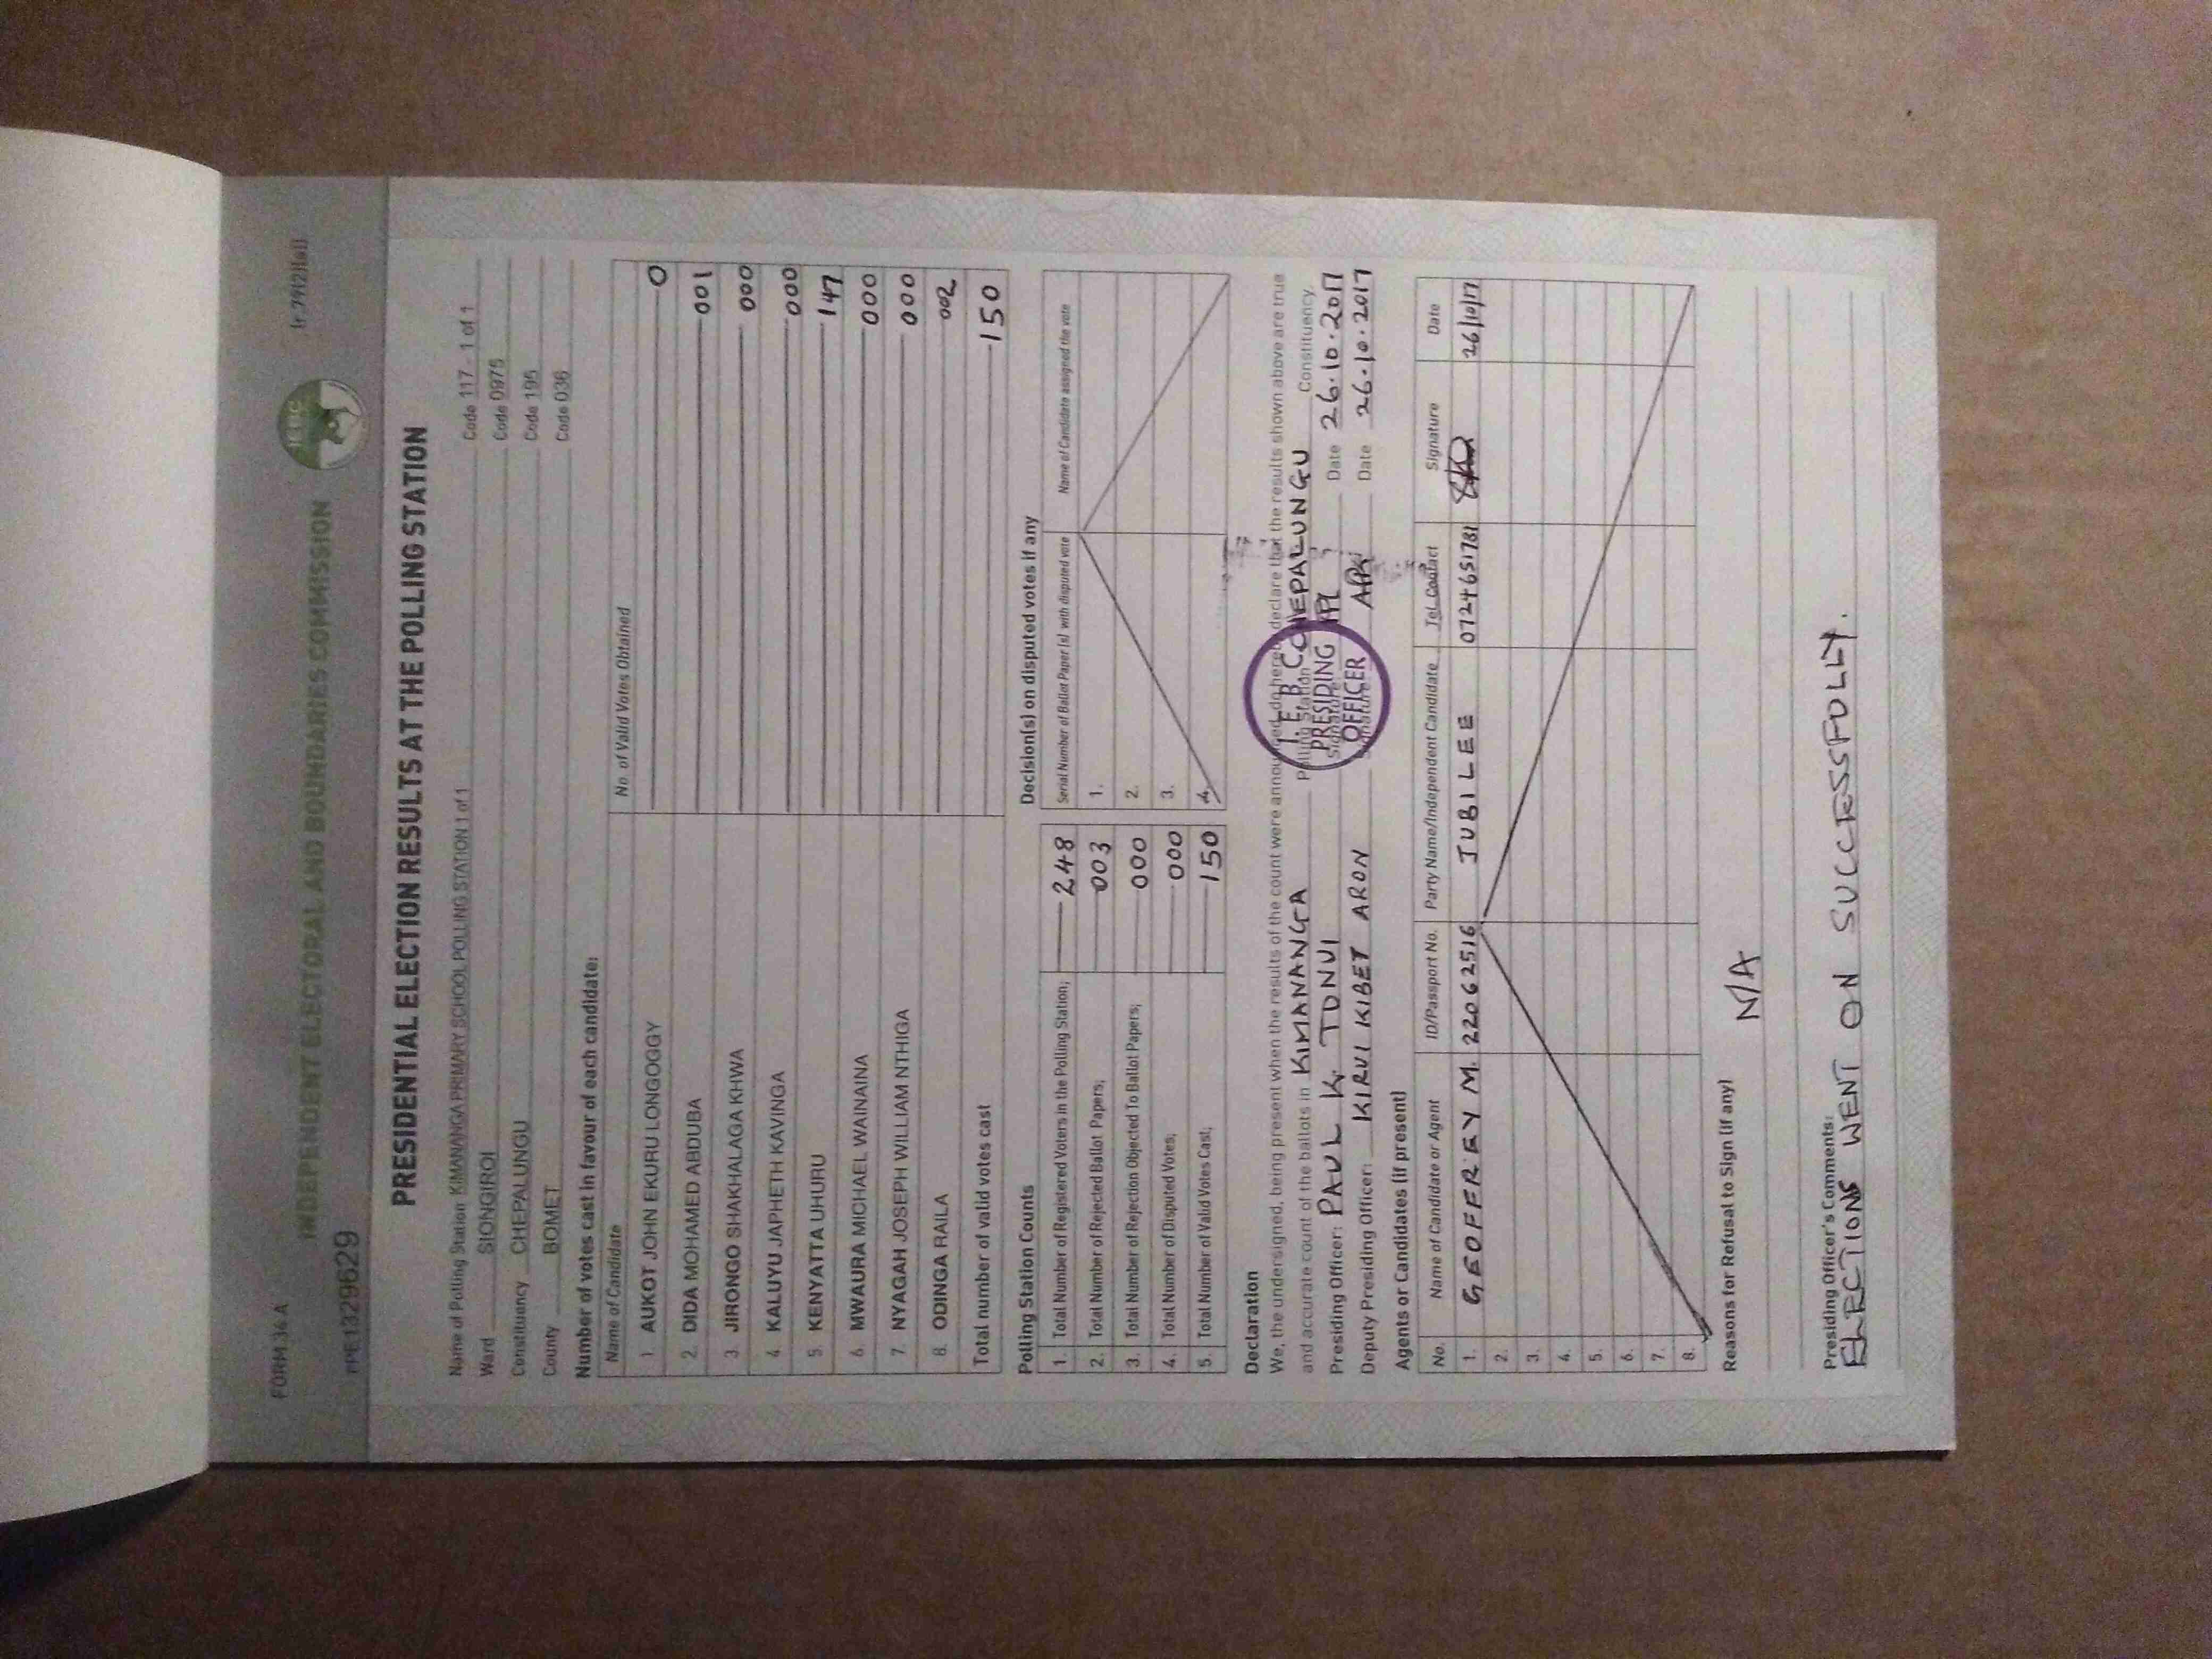 FORM 34 A
(r.79(2)(a))
INDEPENDENT ELECTORAL AND BOUNDARIES COMMISSION
IEBC
PPE1329629
PRESIDENTIAL ELECTION RESULTS AT THE POLLING STATION
Name of Polling Station KIMANANGA PRIMARY SCHOOL POLLING STATION 1 of 1 Code 117 - 1 of 1
Ward SIONGIROI Code 0975
Constituency CHEPALUNGU Code 195
County BOMET Code 036
Number of votes cast in favour of each candidate:
Name of Candidate No. of Valid Votes Obtained
1. AUKOT JOHN EKURU LONGOGGY 0
2. DIDA MOHAMED ABDUBA 001
3. JIRONGO SHAKHALAGA KHWA 000
4. KALUYU JAPHETH KAVINGA 000
5. KENYATTA UHURU 147
6. MWAURA MICHAEL WAINAINA 000
7. NYAGAH JOSEPH WILLIAM NTHIGA 000
8. ODINGA RAILA 002
Total number of valid votes cast 150
Polling Station Counts
1. Total Number of Registered Voters in the Polling Station; 248
2. Total Number of Rejected Ballot Papers; 003
3. Total Number of Rejection Objected To Ballot Papers; 000
4. Total Number of Disputed Votes; 000
5. Total Number of Valid Votes Cast; 150
Decision(s) on disputed votes if any
Serial Number of Ballot Paper (s) with disputed vote Name of Candidate assigned the vote
1.
2.
3.
4.
Declaration
We, the undersigned, being present when the results of the count were announced, do hereby declare that the results shown above are true
and accurate count of the ballots in KIMANANGA Polling Station CHEPALUNGU Constituency.
Presiding Officer: PAUL K. TONUI Signature Date 26.10.2017
Deputy Presiding Officer: KIRUI KIBET ARON Signature Date 26.10.2017
I.E.B.C
PRESIDING
OFFICER
Agents or Candidates (if present)
No. Name of Candidate or Agent ID/Passport No. Party Name/Independent Candidate Tel. Contact Signature Date
1. GEOFFREY M. 22062516 JUBILEE 0724651781 26/10/17
2.
3.
4.
5.
6.
7.
8.
Reasons for Refusal to Sign (if any)
N/A
Presiding Officer's Comments:
ELECTIONS WENT ON SUCCESSFULLY.